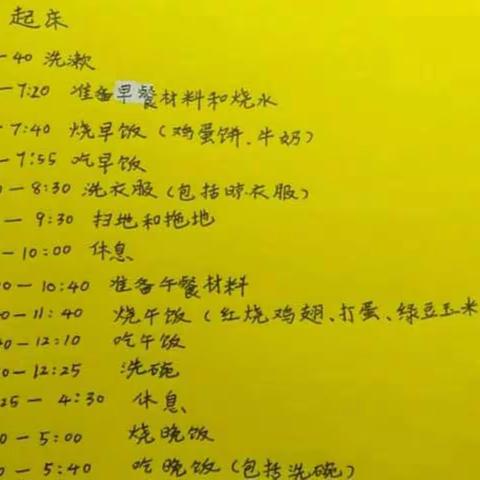 起床
-40 洗漱
-7:20 准备早餐材料和烧水
-7:40 烧早饭（鸡蛋饼、牛奶）
-7:55 吃早饭
0-8:30 洗衣服（包括晾衣服）
- 9:30 扫地和拖地
-10:00 休息
0-10:40 准备午餐材料
0-11:40 烧午饭（红烧鸡翅、打蛋、绿豆玉米
40-12:10 吃午饭
0-12:25 洗碗
25- 4:30 休息
0-5:00 烧晚饭
0-5:40 吃晚饭（包括洗碗）